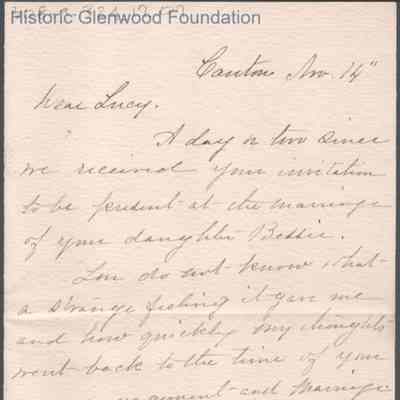 Historic Glenwood Foundation
Canton Nov. 14"
Dear Lucy.
A day or two since
we received your invitation
to be present at the marriage
of your daughter Bessie.
You do not know what
a strange feeling it gave me
and how quickly my thoughts
went back to the time of your
and Marriage